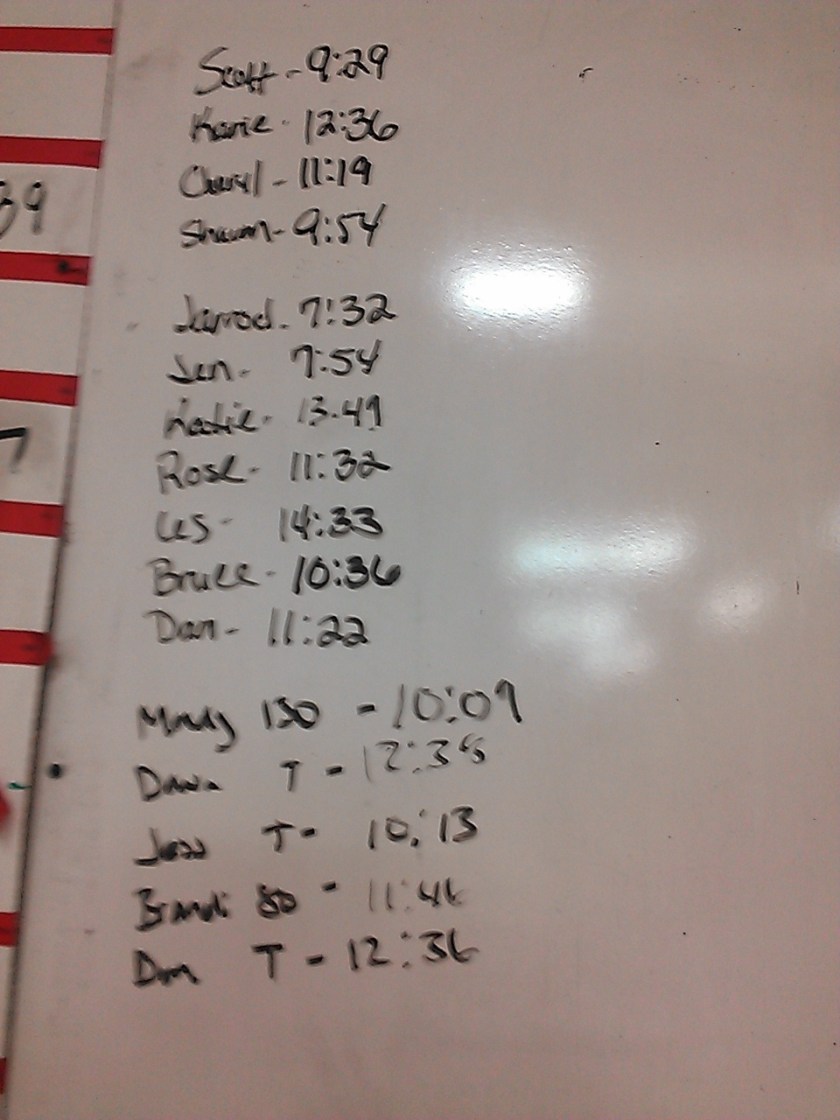 Scott - 9:29
Karie - 12:36
Cheryl - 11:19
Shawn - 9:54
39
Jarrod - 7:32
Jen - 7:54
Katie - 13:49
7
Rose - 11:32
Les - 14:33
Bruce - 10:36
Dan - 11:22
Mindy 130 - 10:09
Dawn T - 12:38
Jess T - 10:13
Brandi 80 - 11:46
Dan T - 12:36